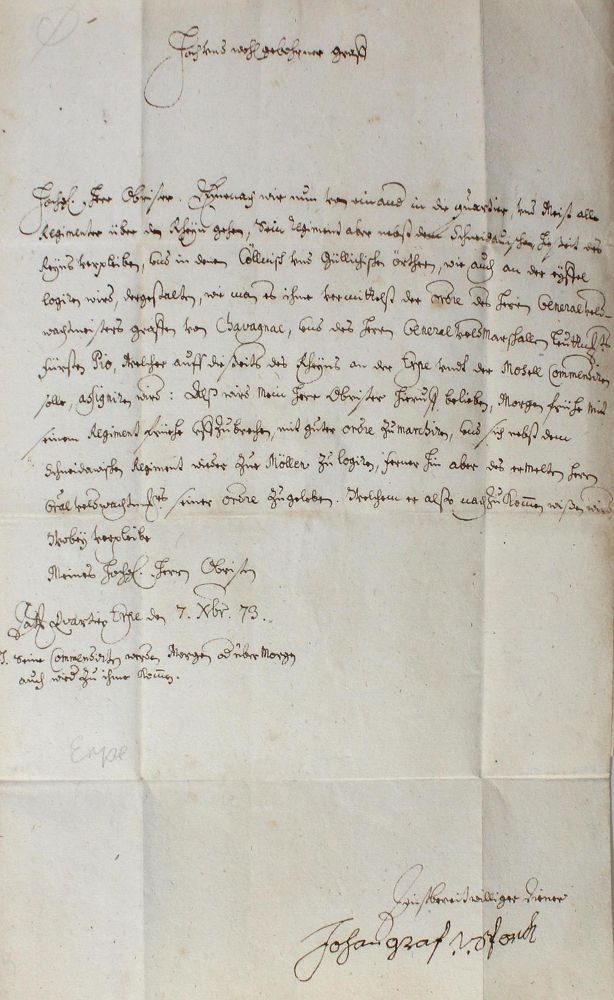 Hoch und wohlgebohrner graff
Hochgl. Herr Obrister. Demnach wir nun von einand in die quartier, und Meist alle
Regimenter über den Rhein gehen, Sein Regiment aber nebst dem Schneidauischen, diß seit des
Reyns verpleiben, und in denen Cöllnisch und Güllichischen örtheren, wie auch an der eyffel
logiren wird, dergestalten, wie man es ihme vermittelst der ordre des Herrn General veld
wachtmeisters graffen von Chavagnac, und des Herrn General veldMarschallen Leuth.
fürsten Pio, Welcher auff disseits des Rheyns an der Erpe und der Mosell Commendiren
solle, assigniren wird: Alß wird Mein Herr Obrister belieben, Morgen früehe mit
seinem Regiment früehe auffzubrechen, mit guter ordre zu marchiren, und sich nebst dem
Schneidawischen Regiment wieder zu logiren, ferner hin aber des ermelten Herrn
Gral veldwachtm. seiner ordre zu geleben. Welchem er also nachzukommen wissen wird
Wobey verpleibe
Meines Hochgl. Herrn Obristen
Haubt Quartier Erpe den 7. Xbr. 73.
Seine Commendirten werden Morgen od über Morgen
auch wied zu ihme kommen.
Erpe
Dienstbereitwilliger diener
Johan graf v. Sporck